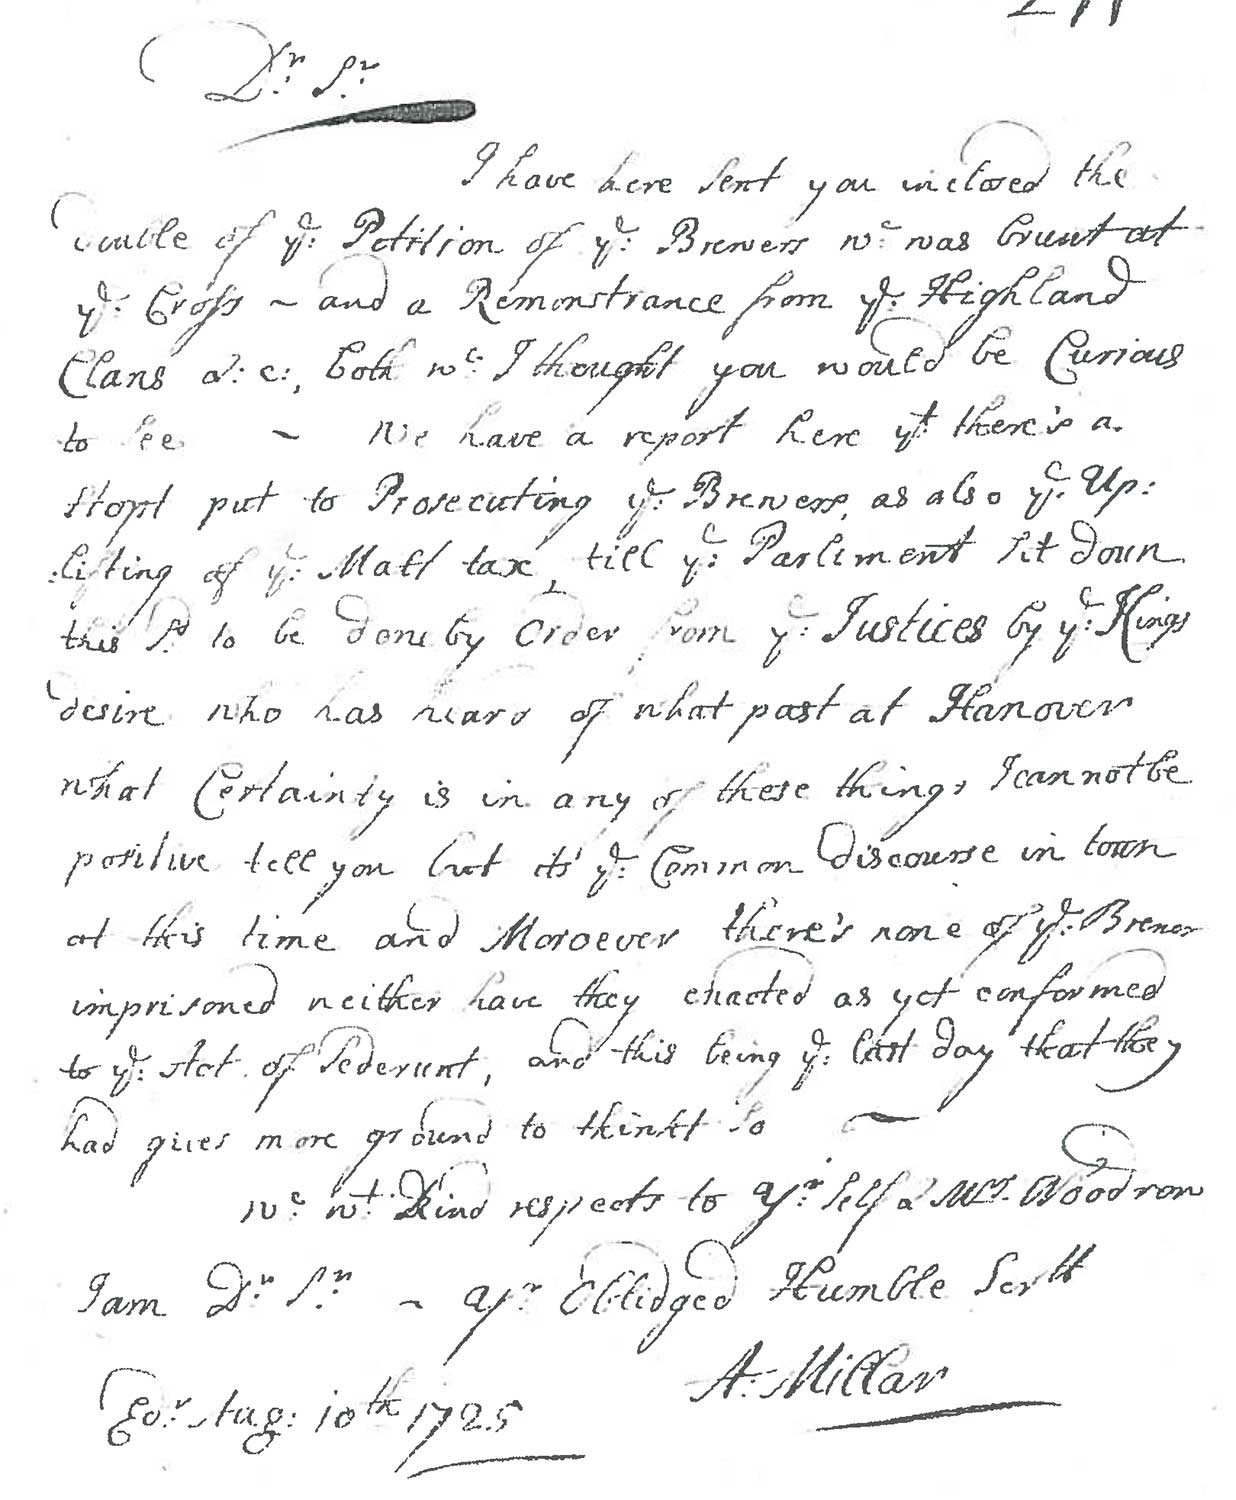 Dr. Sr.
I have here sent you inclosed the
double of ye: Petition of ye: Brewers wc was brunt at
ye: Cross ~ and a Remonstrance from ye: Highland
Clans &: c:, both wc: I thought you would be Curious
to see ~ We have a report here yt there's a
stopt put to Prosecuting ye: Brewers, as also ye: Up:
:lifting of ye: Matl tax, till ye: Parliment sit doun
this sd to be done by Order from ye: Justices by ye: Kings
desire who has heard of what past at Hanover
what Certainty is in any of these things I cannot be
positive tell you but its' ye: Common discourse in town
at this time and Moroever there's none of ye: Brewer
imprisoned neither have they enacted as yet conformed
to ye: Act of Sederunt, and this being ye: last day that they
had gives more ground to thinkt so ~
wc: wt: Kind respects to Yr: self & Mrs. Woodrow
I am Dr. Sr. ~ Yr Oblidged Humble Servtt
A: Millar
Edr. Aug: 10th 1725